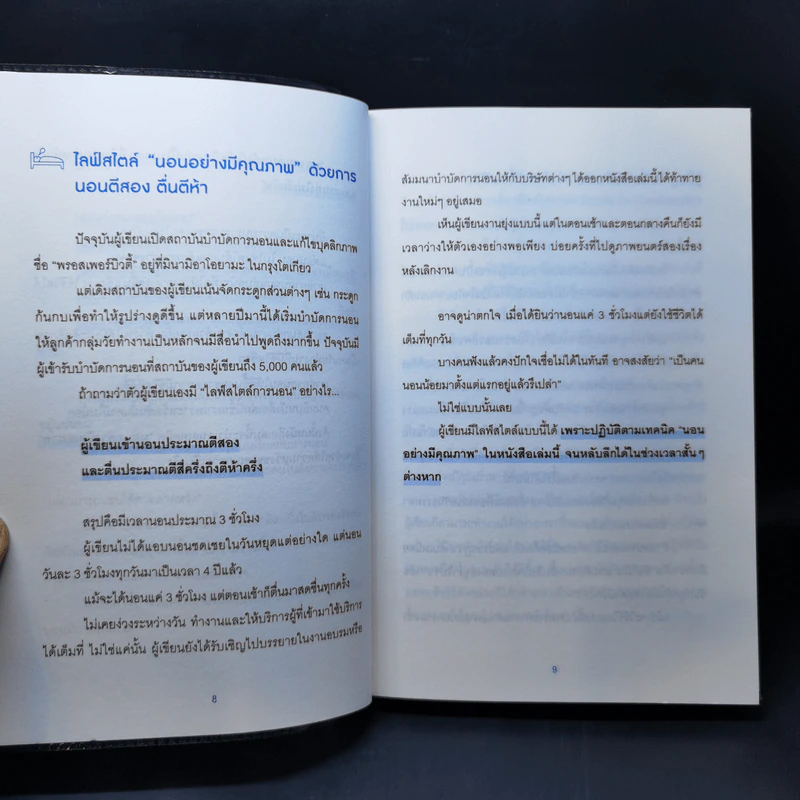 ไลฟ์สไตล์ “นอนอย่างมีคุณภาพ” ด้วยการ
นอนตีสอง ตื่นตีห้า
ปัจจุบันผู้เขียนเปิดสถาบันบำบัดการนอนและแก้ไขบุคลิกภาพ
ชื่อ “พรอสเพอร์บิวตี้” อยู่ที่มินามิอาโอยามะ ในกรุงโตเกียว
แต่เดิมสถาบันของผู้เขียนเน้นจัดกระดูกส่วนต่างๆ เช่น กระดูก
ก้นกบเพื่อทำให้รูปร่างดูดีขึ้น แต่หลายปีมานี้ได้เริ่มบำบัดการนอน
ให้ลูกค้ากลุ่มวัยทำงานเป็นหลักจนมีสื่อนำไปพูดถึงมากขึ้น ปัจจุบันมี
ผู้เข้ารับบำบัดการนอนที่สถาบันของผู้เขียนถึง 5,000 คนแล้ว
ถ้าถามว่าตัวผู้เขียนเองมี “ไลฟ์สไตล์การนอน” อย่างไร...
ผู้เขียนเข้านอนประมาณตีสอง
และตื่นประมาณตีสี่ครึ่งถึงตีห้าครึ่ง
สรุปคือมีเวลานอนประมาณ 3 ชั่วโมง
ผู้เขียนไม่ได้แอบนอนชดเชยในวันหยุดแต่อย่างใด แต่นอน
วันละ 3 ชั่วโมงทุกวันมาเป็นเวลา 4 ปีแล้ว
แม้จะได้นอนแค่ 3 ชั่วโมง แต่ตอนเช้าก็ตื่นมาสดชื่นทุกครั้ง
ไม่เคยง่วงระหว่างวัน ทำงานและให้บริการผู้ที่เข้ามาใช้บริการ
ได้เต็มที่ ไม่ใช่แค่นั้น ผู้เขียนยังได้รับเชิญไปบรรยายในงานอบรมหรือ
8
สัมมนาบำบัดการนอนให้กับบริษัทต่างๆ ได้ออกหนังสือเล่มนี้ ได้ท้าทาย
งานใหม่ๆ อยู่เสมอ
เห็นผู้เขียนงานยุ่งแบบนี้ แต่ในตอนเช้าและตอนกลางคืนก็ยังมี
เวลาว่างให้ตัวเองอย่างพอเพียง บ่อยครั้งที่ไปดูภาพยนตร์สองเรื่อง
หลังเลิกงาน
อาจดูน่าตกใจ เมื่อได้ยินว่านอนแค่ 3 ชั่วโมงแต่ยังใช้ชีวิตได้
เต็มที่ทุกวัน
บางคนฟังแล้วคงปักใจเชื่อไม่ได้ในทันที อาจสงสัยว่า “เป็นคน
นอนน้อยมาตั้งแต่แรกอยู่แล้วรึเปล่า”
ไม่ใช่แบบนั้นเลย
ผู้เขียนมีไลฟ์สไตล์แบบนี้ได้ เพราะปฏิบัติตามเทคนิค “นอน
อย่างมีคุณภาพ” ในหนังสือเล่มนี้ จนหลับลึกได้ในช่วงเวลาสั้นๆ
ต่างหาก
9